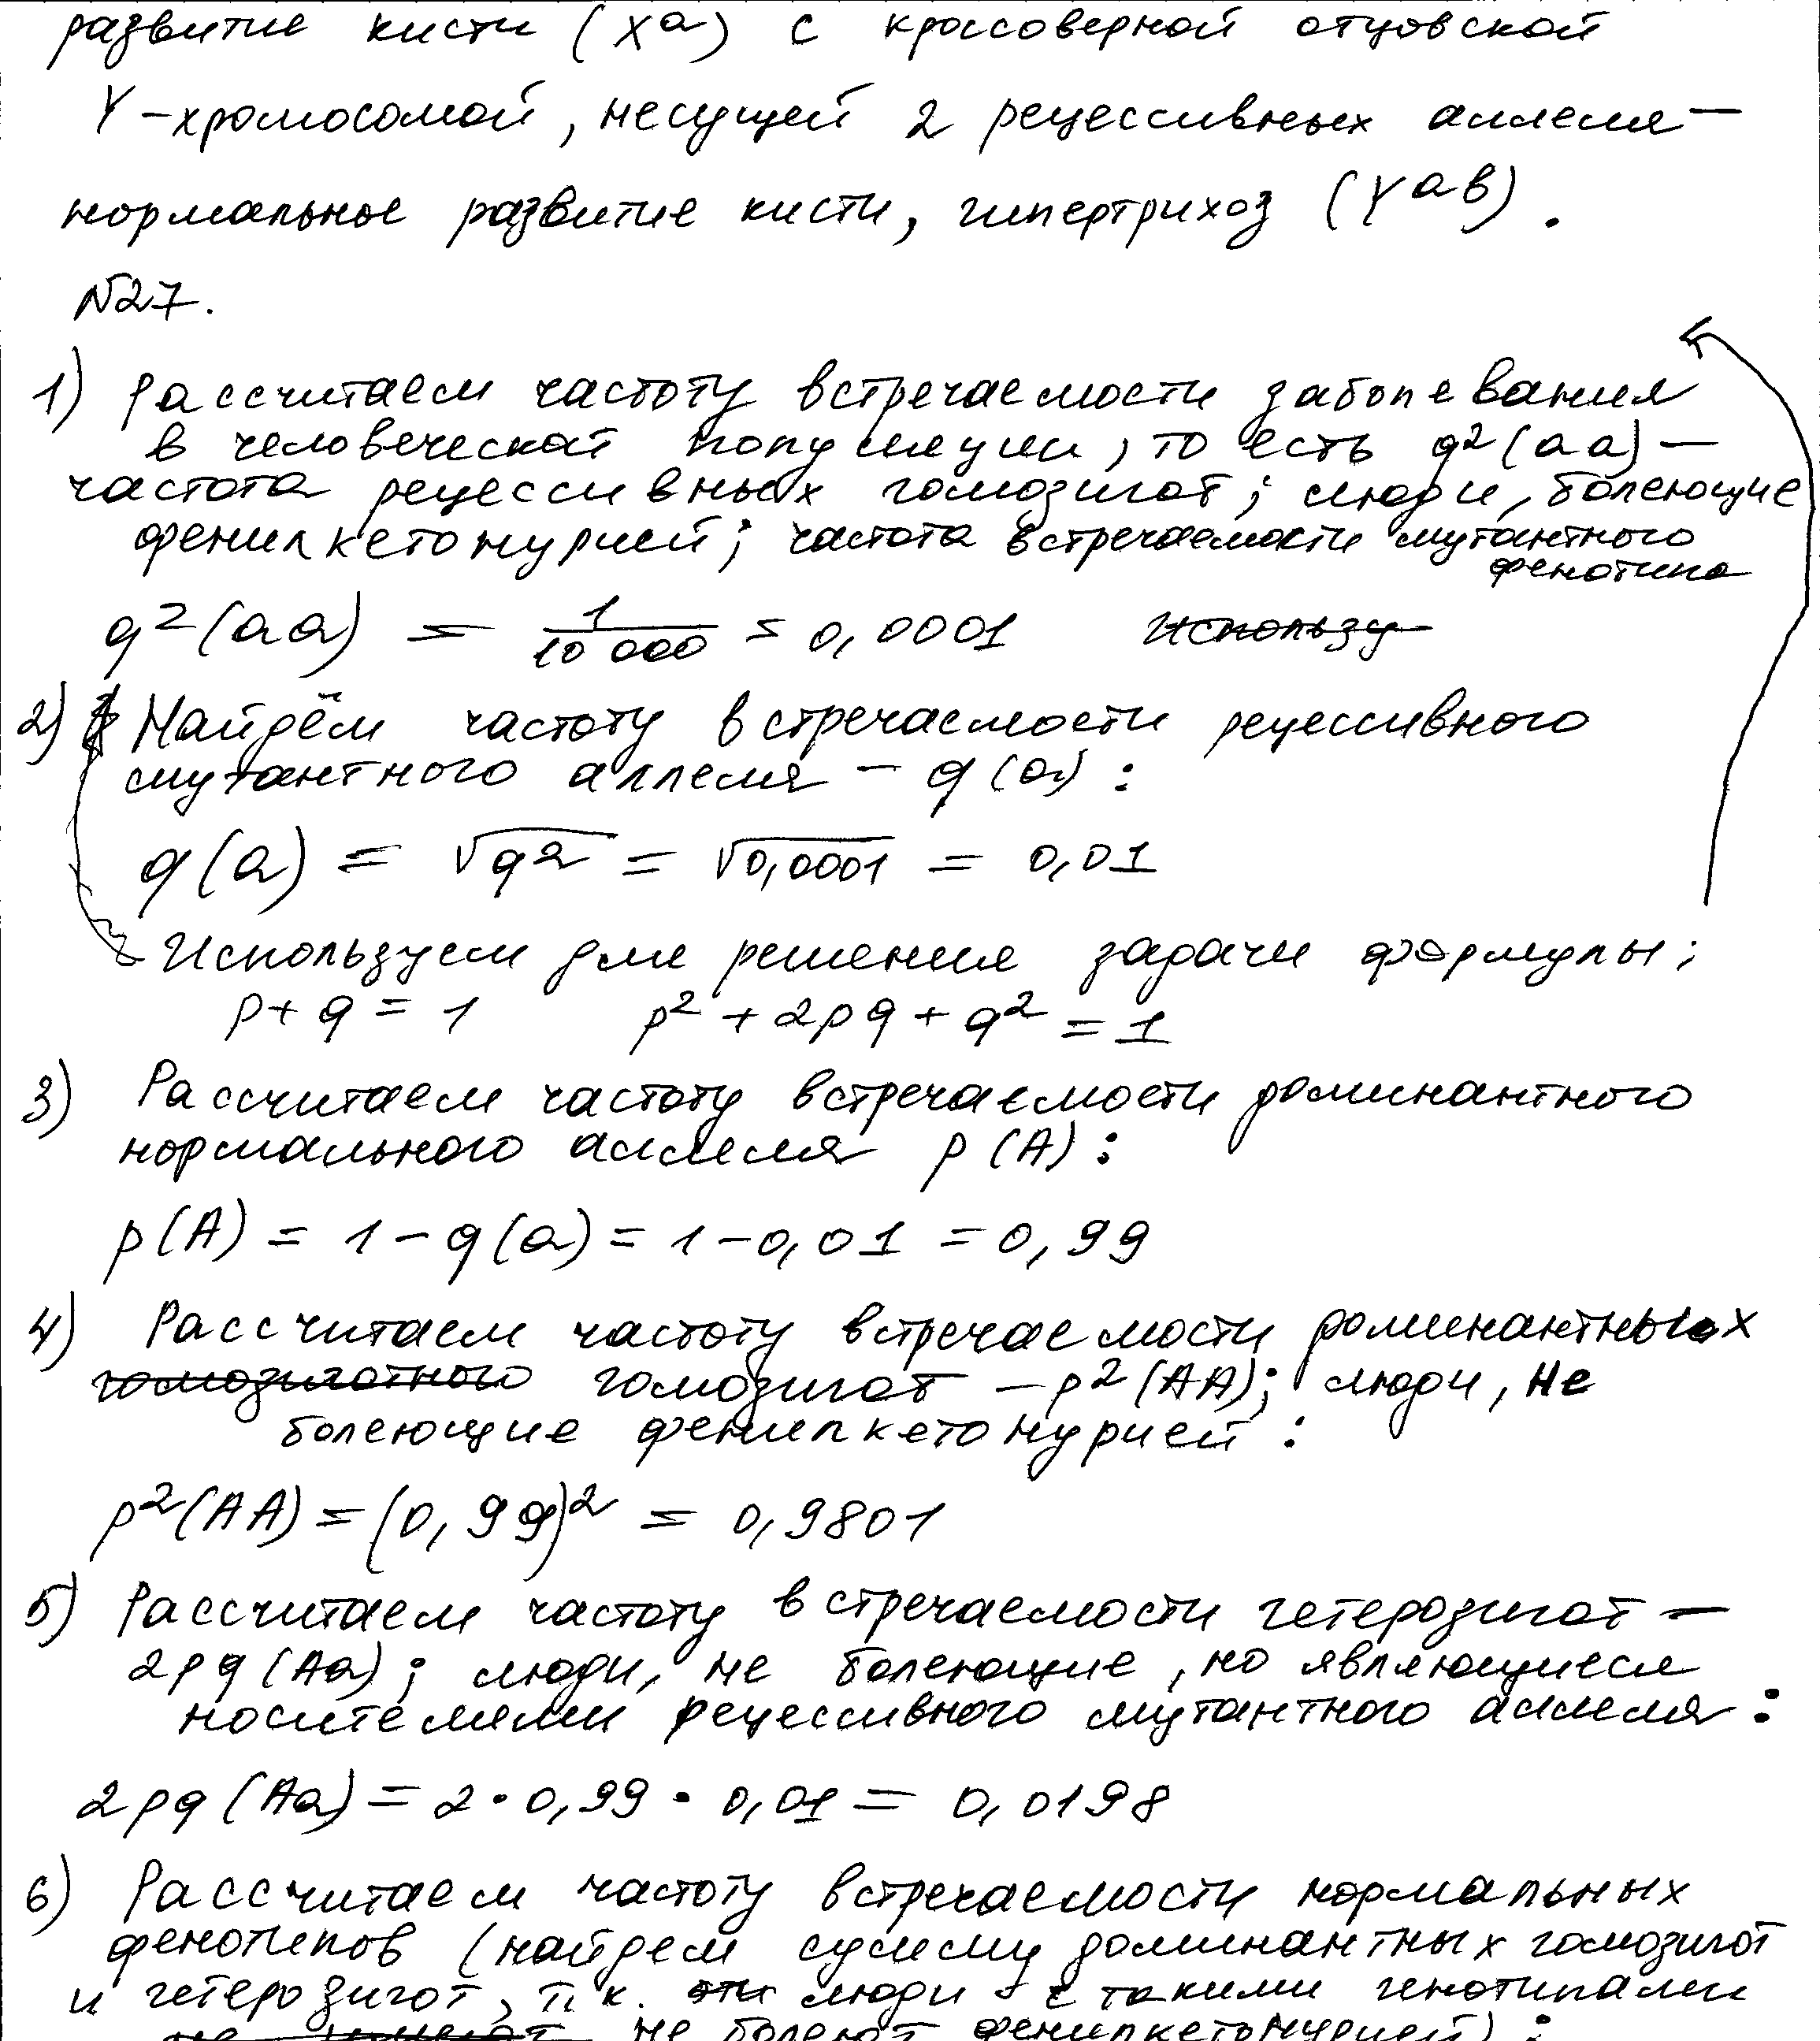 развитие кисти (Xᵃ) с кроссоверной отцовской
Y-хромосомой, несущей 2 рецессивных аллеля —
нормальное развитие кисти, гипертрихоз (Yᵃᵇ).
№27.
1) Рассчитаем частоту встречаемости заболевания
в человеческой популяции, то есть q²(aa) —
частота рецессивных гомозигот; люди, болеющие
фенилкетонурией; частота встречаемости мутантного
фенотипа
q²(aa) = 1/10 000 = 0,0001 Использу
2) Найдём частоту встречаемости рецессивного
мутантного аллеля - q(a):
q(a) = √q² = √0,0001 = 0,01
Используем для решения задачи формулы:
p + q = 1 p² + 2pq + q² = 1
3) Рассчитаем частоту встречаемости доминантного
нормального аллеля p(A):
p(A) = 1 - q(a) = 1 - 0,01 = 0,99
4) Рассчитаем частоту встречаемости доминантных
гомозиготного гомозигот - p²(AA); люди, не
болеющие фенилкетонурией:
p²(AA) = (0,99)² = 0,9801
5) Рассчитаем частоту встречаемости гетерозигот —
2pq(Aa); люди, не болеющие, но являющиеся
носителями рецессивного мутантного аллеля:
2pq(Aa) = 2·0,99·0,01 = 0,0198
6) Рассчитаем частоту встречаемости нормальных
фенотипов (найдем сумму доминантных гомозигот
и гетерозигот, т.к. эти люди с такими генотипами
не болеют фенилкетонурией):